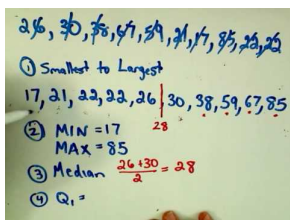 26, 30, 38, 67, 59, 21, 17, 85, 22, 22
① Smallest to Largest
17, 21, 22, 22, 26 | 30, 38, 59, 67, 85
28
② MIN = 17
MAX = 85
③ Median 26+30/2 = 28
④ Q₁ =